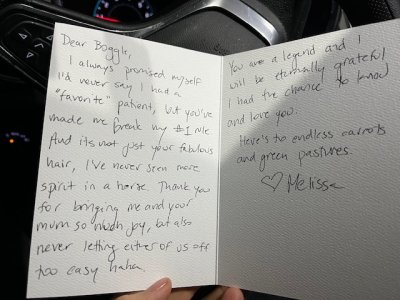 Dear Boggle,
I always promised myself
I'd never say I had a
"favorite" patient, but you've
made me break my #1 rule
And its not just your fabulous
hair, I've never seen more
spirit in a horse. Thank you
for bringing me and your
mum so much joy, but also
never letting either of us off
too easy haha.
You are a legend and I
will be eternally grateful
I had the chance to know
and love you.
Here's to endless carrots
and green pastures
♡ Melissa